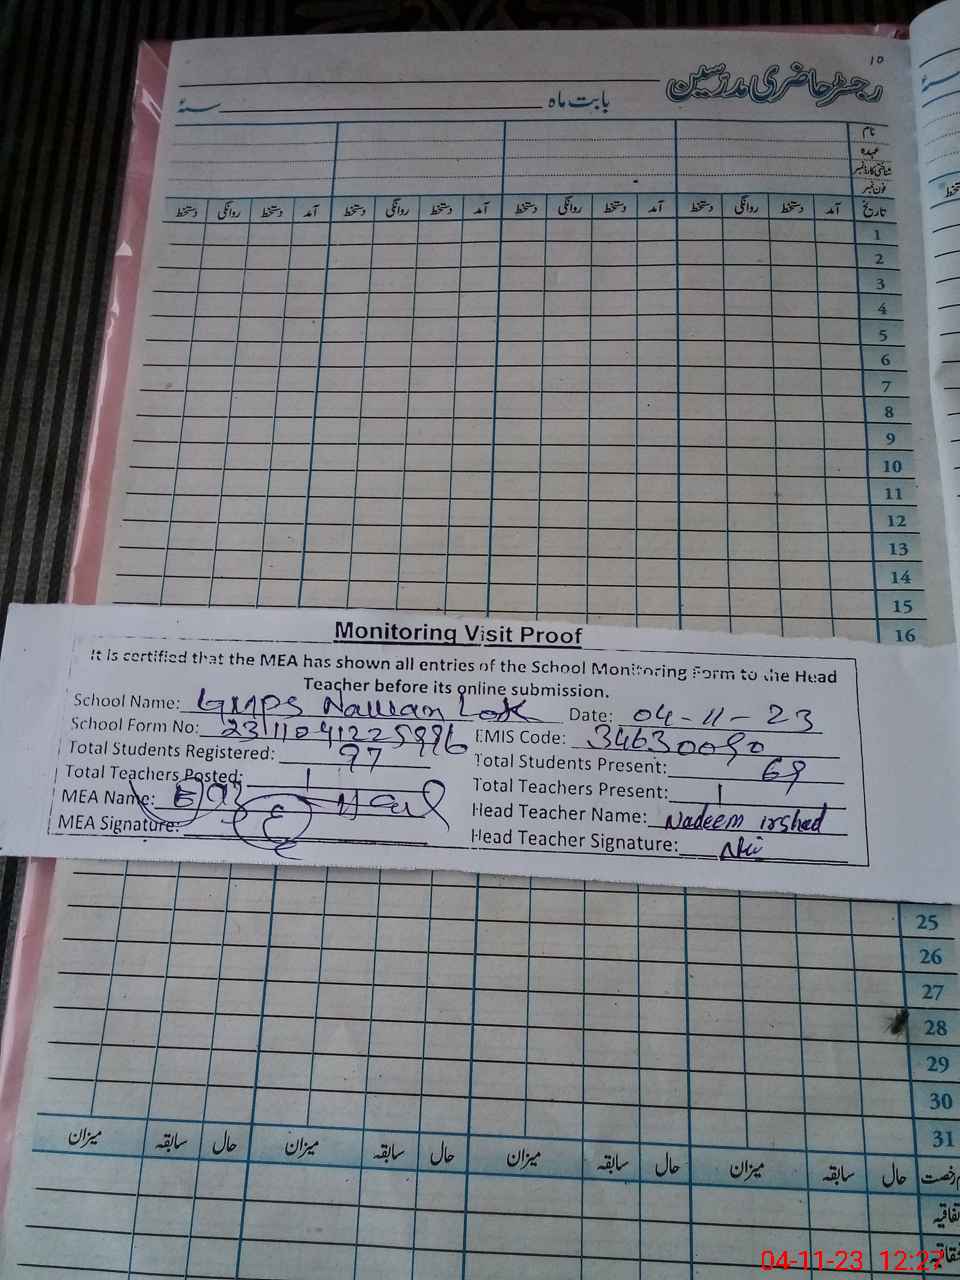 ۱۵
رجسٹر حاضری مدرسین
بابت ماہ ــــــــ سنۂ
نام
عہدہ
شناختی کارڈ نمبر
فون نمبر
تاریخ آمد دستخط روانگی دستخط آمد دستخط روانگی دستخط آمد دستخط روانگی دستخط آمد دستخط روانگی دستخط
1
2
3
4
5
6
7
8
9
10
11
12
13
14
15
16
Monitoring Visit Proof
It is certified that the MEA has shown all entries of the School Monitoring Form to the Head
Teacher before its online submission.
School Name: GMPS Date: 04-11-23
School Form No: EMIS Code: 34630090
Total Students Registered: 97 Total Students Present: 69
Total Teachers Posted: 1 Total Teachers Present: 1
MEA Name: Head Teacher Name: Nadeem irshad
MEA Signature: Head Teacher Signature:
25
26
27
28
29
30
31
حال سابقہ میزان حال سابقہ میزان حال سابقہ میزان حال سابقہ میزان
04-11-23 12:27